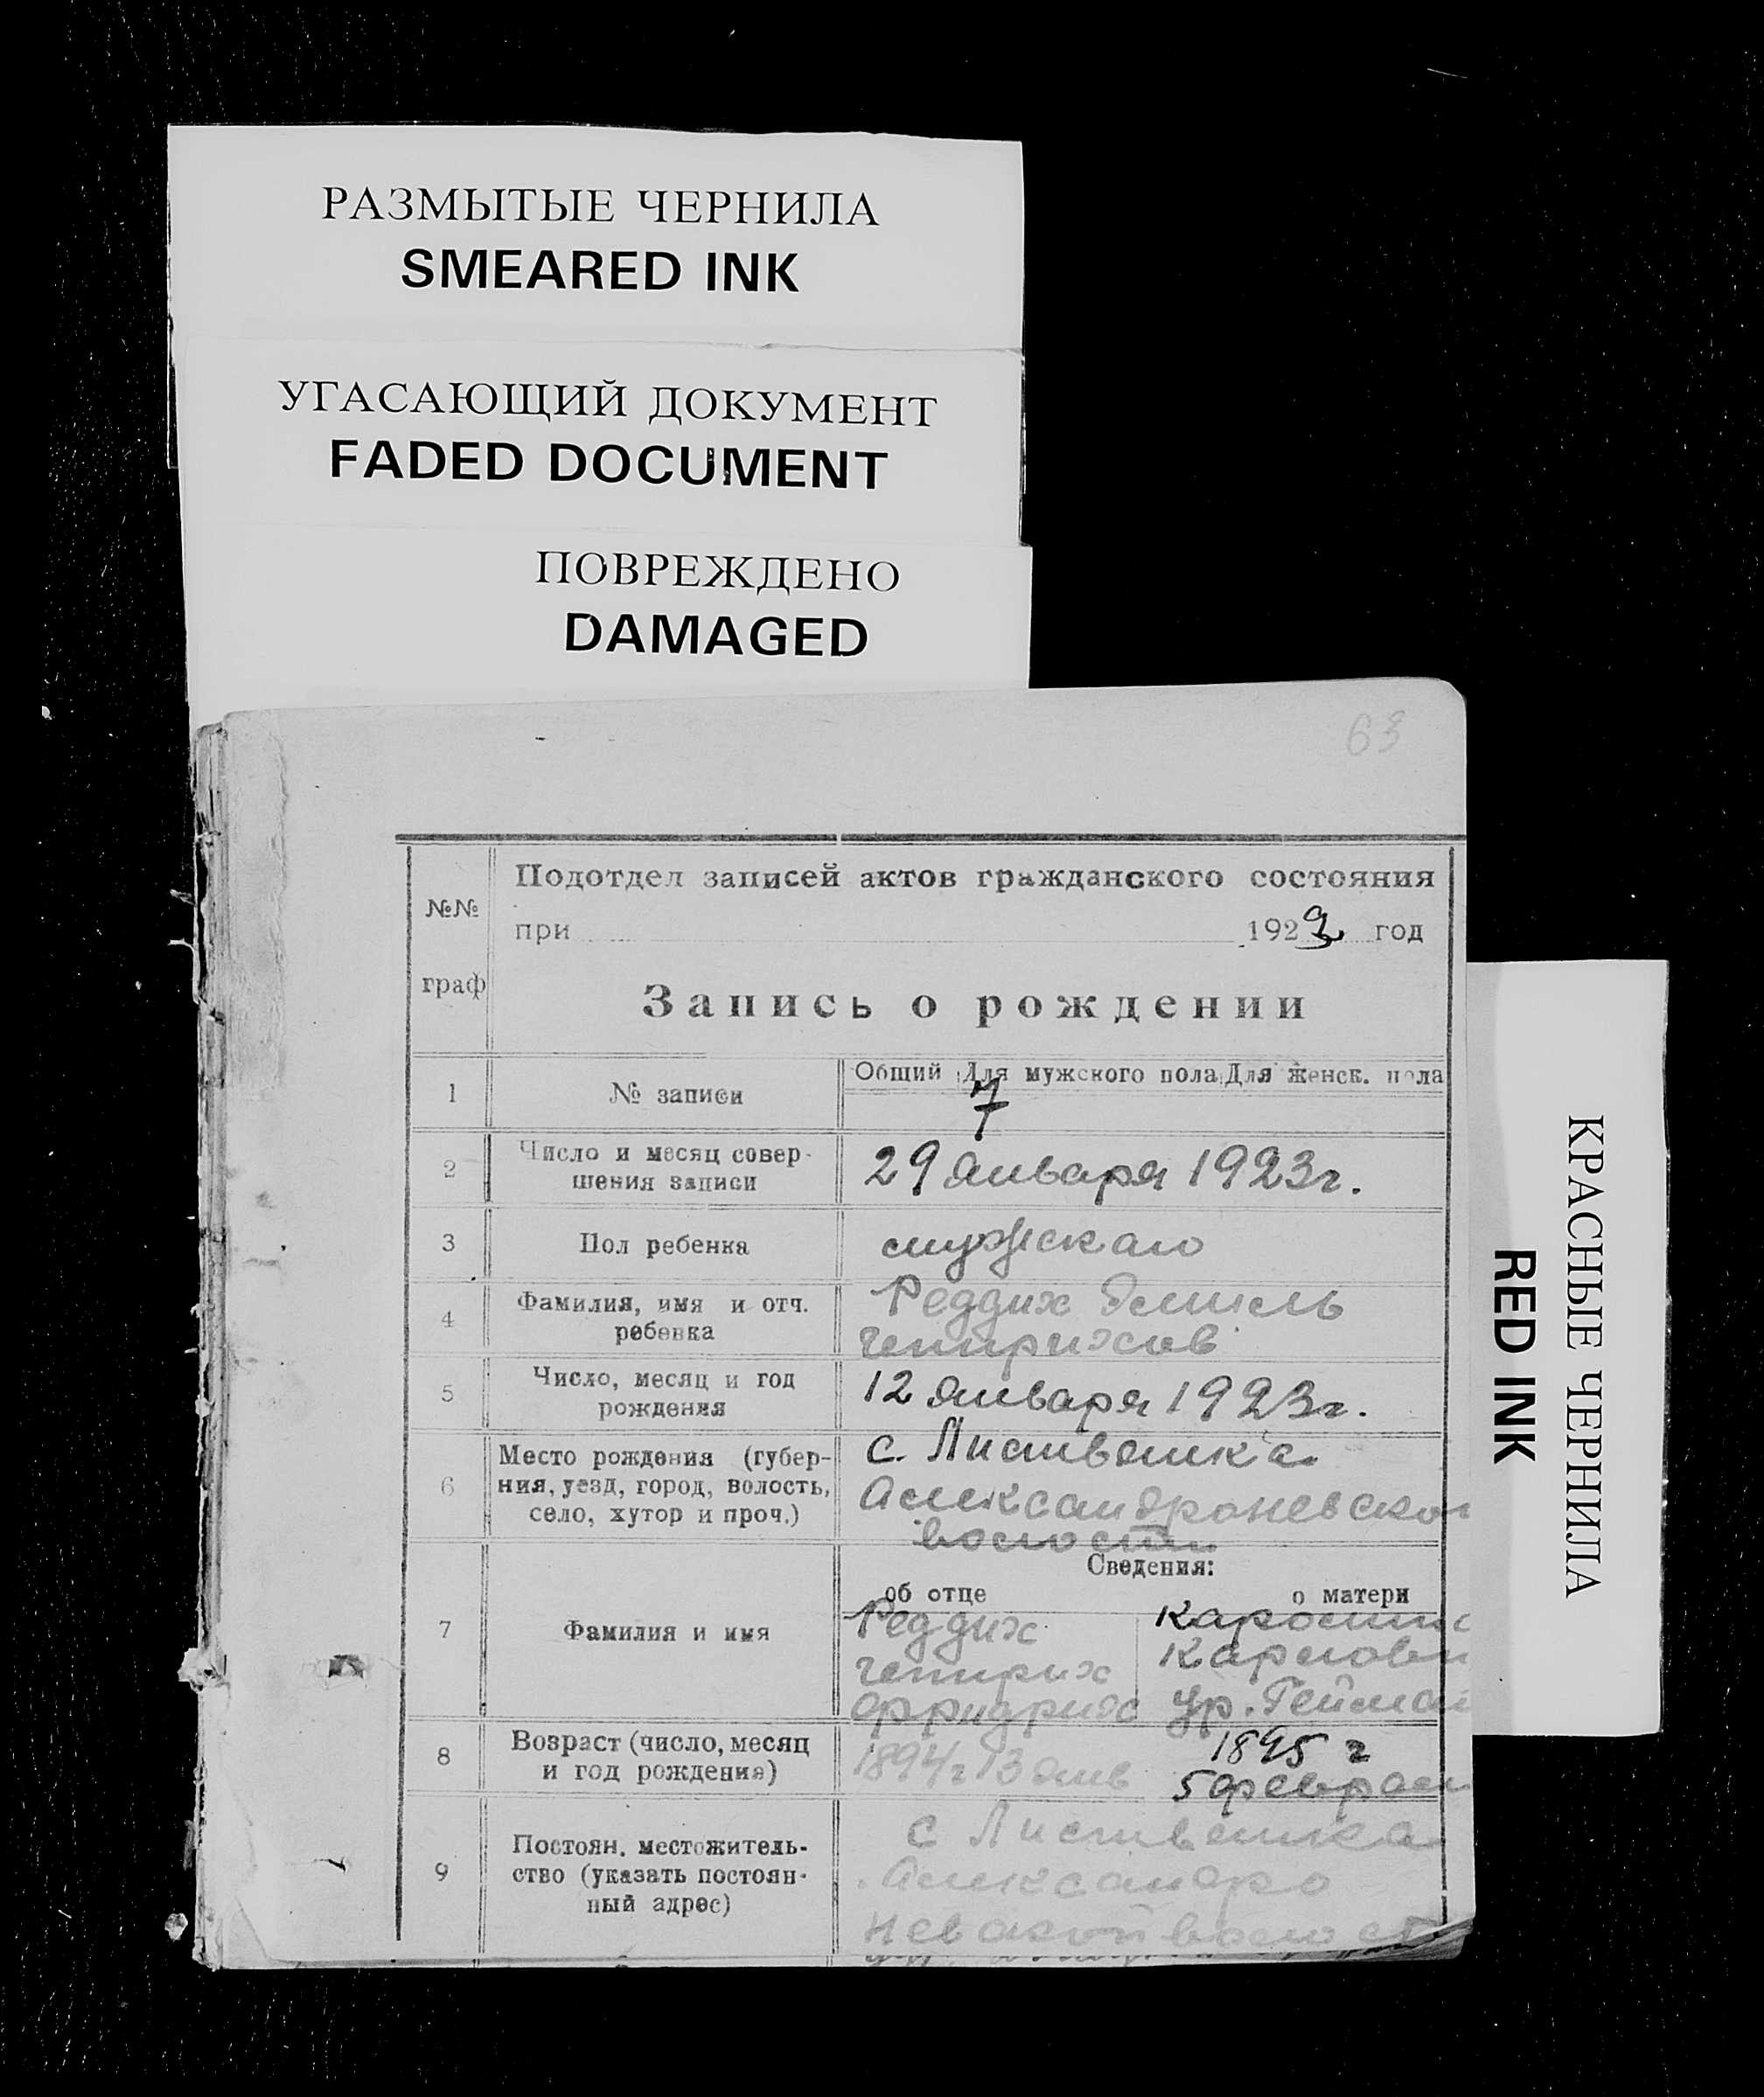 РАЗМЫТЫЕ ЧЕРНИЛА
SMEARED INK
УГАСАЮЩИЙ ДОКУМЕНТ
FADED DOCUMENT
ПОВРЕЖДЕНО
DAMAGED
63
№№
граф
Подотдел записей актов гражданского состояния
при 1923 год
Запись о рождении
1
№ записи
Общий Для мужского пола Для женск. пола
7
2
Число и месяц совер-
шения записи
29 января 1923г.
3
Пол ребенка
мужскаго
4
Фамилия, имя и отч.
ребенка
Реддих Эмиль
Генрихов
5
Число, месяц и год
рождения
12 января 1923г.
6
Место рождения (губер-
ния, уезд, город, волость,
село, хутор и проч.)
с. Листвянка
Александроневской
волости
Сведения:
об отце
о матери
7
Фамилия и имя
Реддих
Генрих
Фридрихс
Каролина
Карловн
ур. Гейман
8
Возраст (число, месяц
и год рождения)
1894г 13 янв
1895 г
5 феврал
9
Постоян. местожитель-
ство (указать постоян-
ный адрес)
с Листвянка
Александро
Невской волост
КРАСНЫЕ ЧЕРНИЛА
RED INK